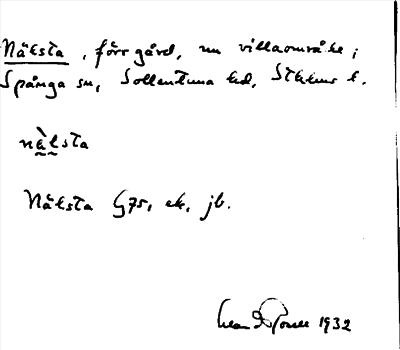 Näksta, förr gård, nu villaområde i
Spånga sn, Sollentuna hd, Sthlms l.
nä̀ksta
Näksta G75, ek, jb.
1932